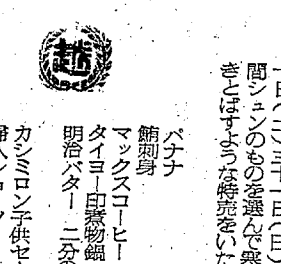 一日(土)三十一日(日)
間シュンのものを選んで寒
きとばすような特売をいた
越
バナナ
鮪刺身
マックスコーヒー
タイヨー印煮物鍋
明治バター 二分の
カシミロン子供セ
婦人ショ